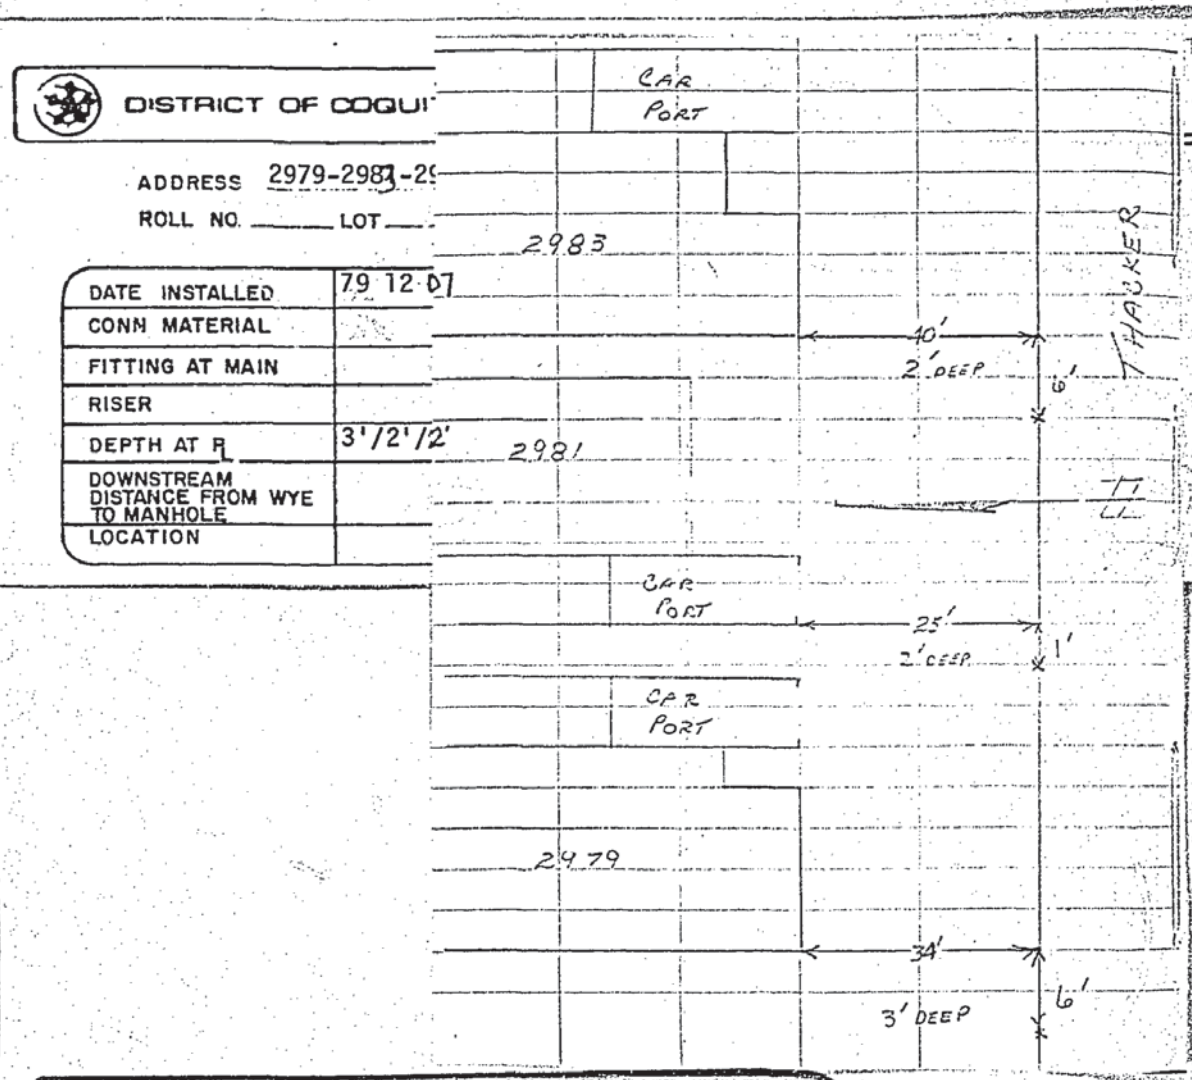 DISTRICT OF COQUI
ADDRESS 2979-2983-29
ROLL NO. LOT
DATE INSTALLED 79 12 07
CONN MATERIAL
FITTING AT MAIN
RISER
DEPTH AT PL 3'/2'/2'
DOWNSTREAM
DISTANCE FROM WYE
TO MANHOLE
LOCATION
CAR
PORT
2983
THACKER
40'
2' DEEP
6'
2981
CAR
PORT
25'
2' DEEP
1'
CAR
PORT
2979
34'
3' DEEP
6'